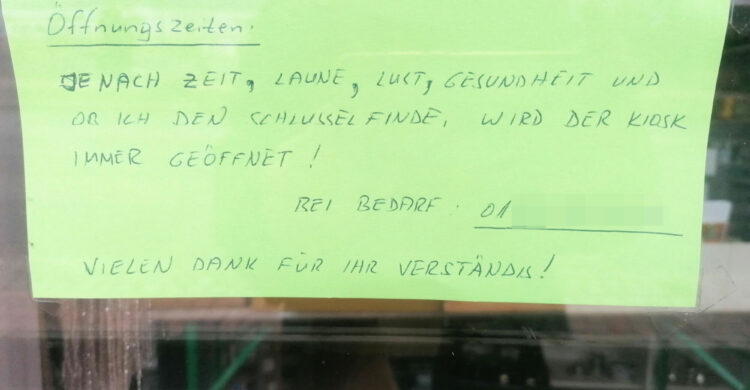 Öffnungszeiten:
JE NACH ZEIT, LAUNE, LUST, GESUNDHEIT UND
OB ICH DEN SCHLUSSEL FINDE, WIRD DER KIOSK
IMMER GEÖFFNET!
BEI BEDARF: 01
VIELEN DANK FÜR IHR VERSTÄNDIS!